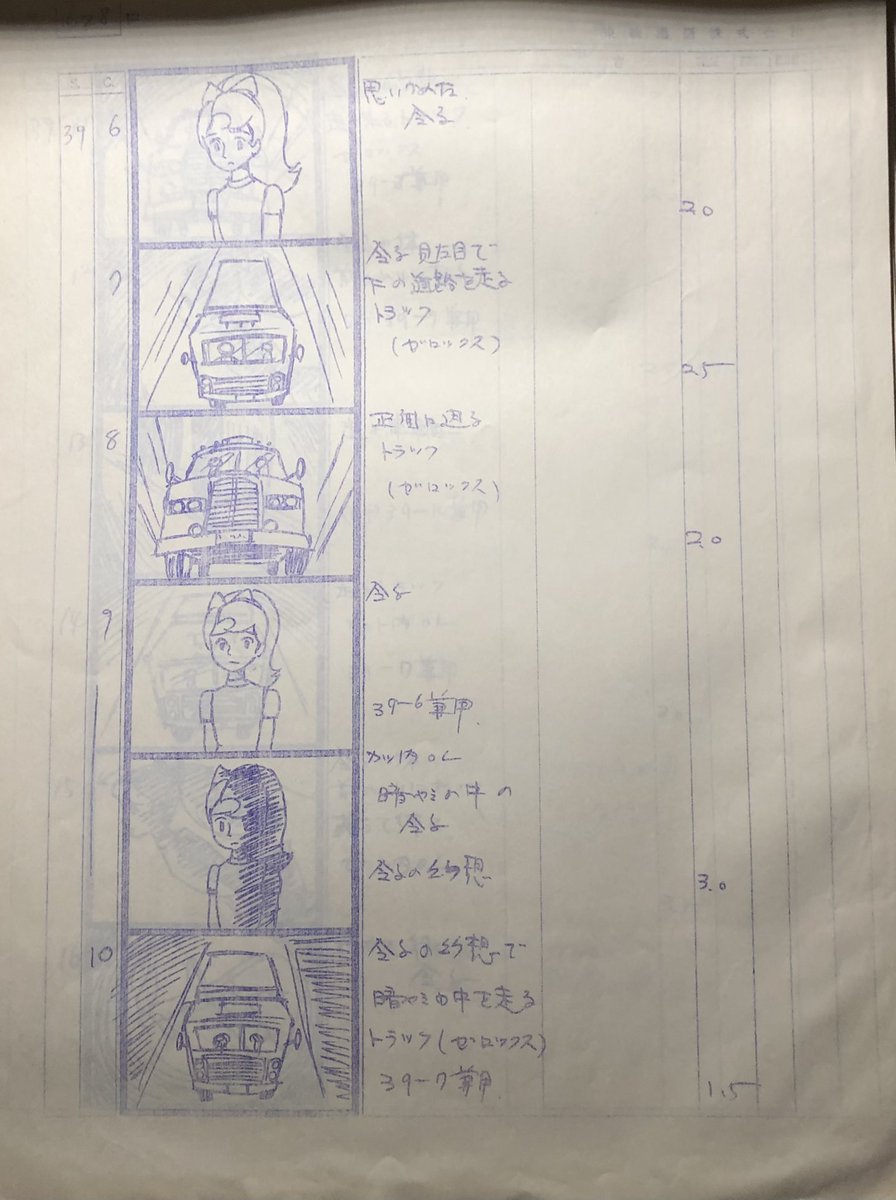 S. C.
39 6
思いつめた
金子
2.0
7
金子見た目で
下の道路を走る
トラック
(ゼロックス)
2.5
8
正面に迫る
トラック
(ゼロックス)
2.0
9
金子
39-6兼用
カット内OL
暗やみの中の
金子
金子の幻想
3.0
10
金子の幻想で
暗やみの中を走る
トラック(ゼロックス)
39-7兼用
1.5